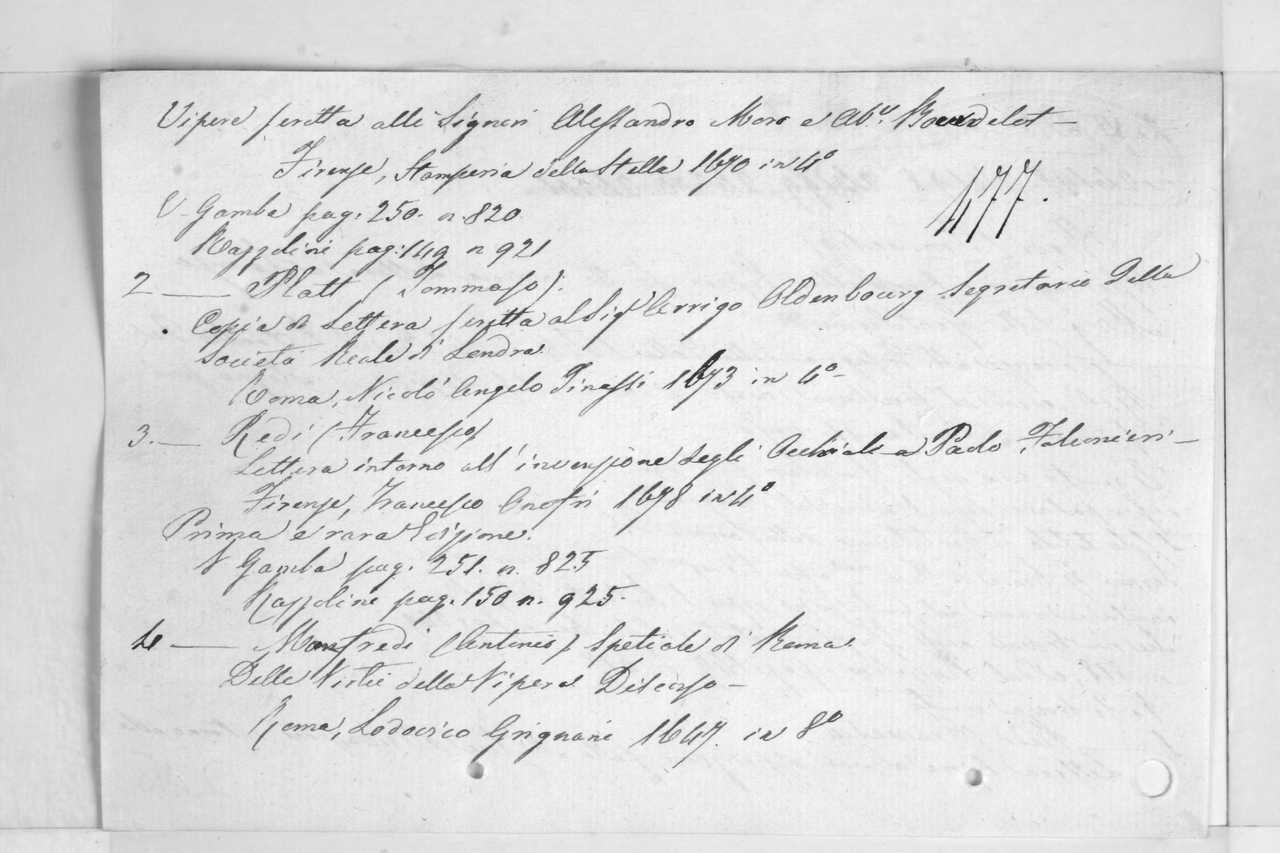 Vipere scritta alli Signori Alessandro Moro e Ab.e Bourdelot —
Firenze, Stamperia della Stella 1670 in 4°
477.
V. Gamba pag. 250. n. 820
Razzolini pag: 149 n 921
2 — Platt (Tommaso).
Copia di Lettera scritta al Sig.r Arrigo Oldenbourg Segretario Della
Società Reale di Londra
Roma, Nicolò Angelo Tinassi 1673 in 4° —
3. — Redi (Francesco)
Lettera intorno all' invenzione degli Occhiali a Paolo Falconieri —
Firenze, Francesco Onofri 1678 in 4°
Prima e rara Edizione.
V Gamba pag. 251. n. 825
Razzolini pag. 150 n. 925.
4 — Manfredi (Antonio) Spetiale di Roma
Delle Virtù della Vipera Discorso —
Roma, Lodovico Grignani 1647. in 8°